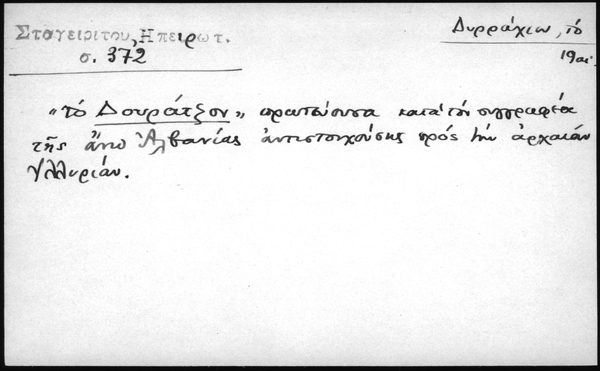 Σταγειρίτου, Ηπειρωτ.
σ. 372
Δυρράχιον, τό
19 αι.
"τό Δουράτζον" πρωτεύουσα κατά τόν συγγραφέα
τῆς ἄνω Ἀλβανίας ἀντιστοιχούσης πρός τήν ἀρχαίαν
Ἰλλυρίαν.